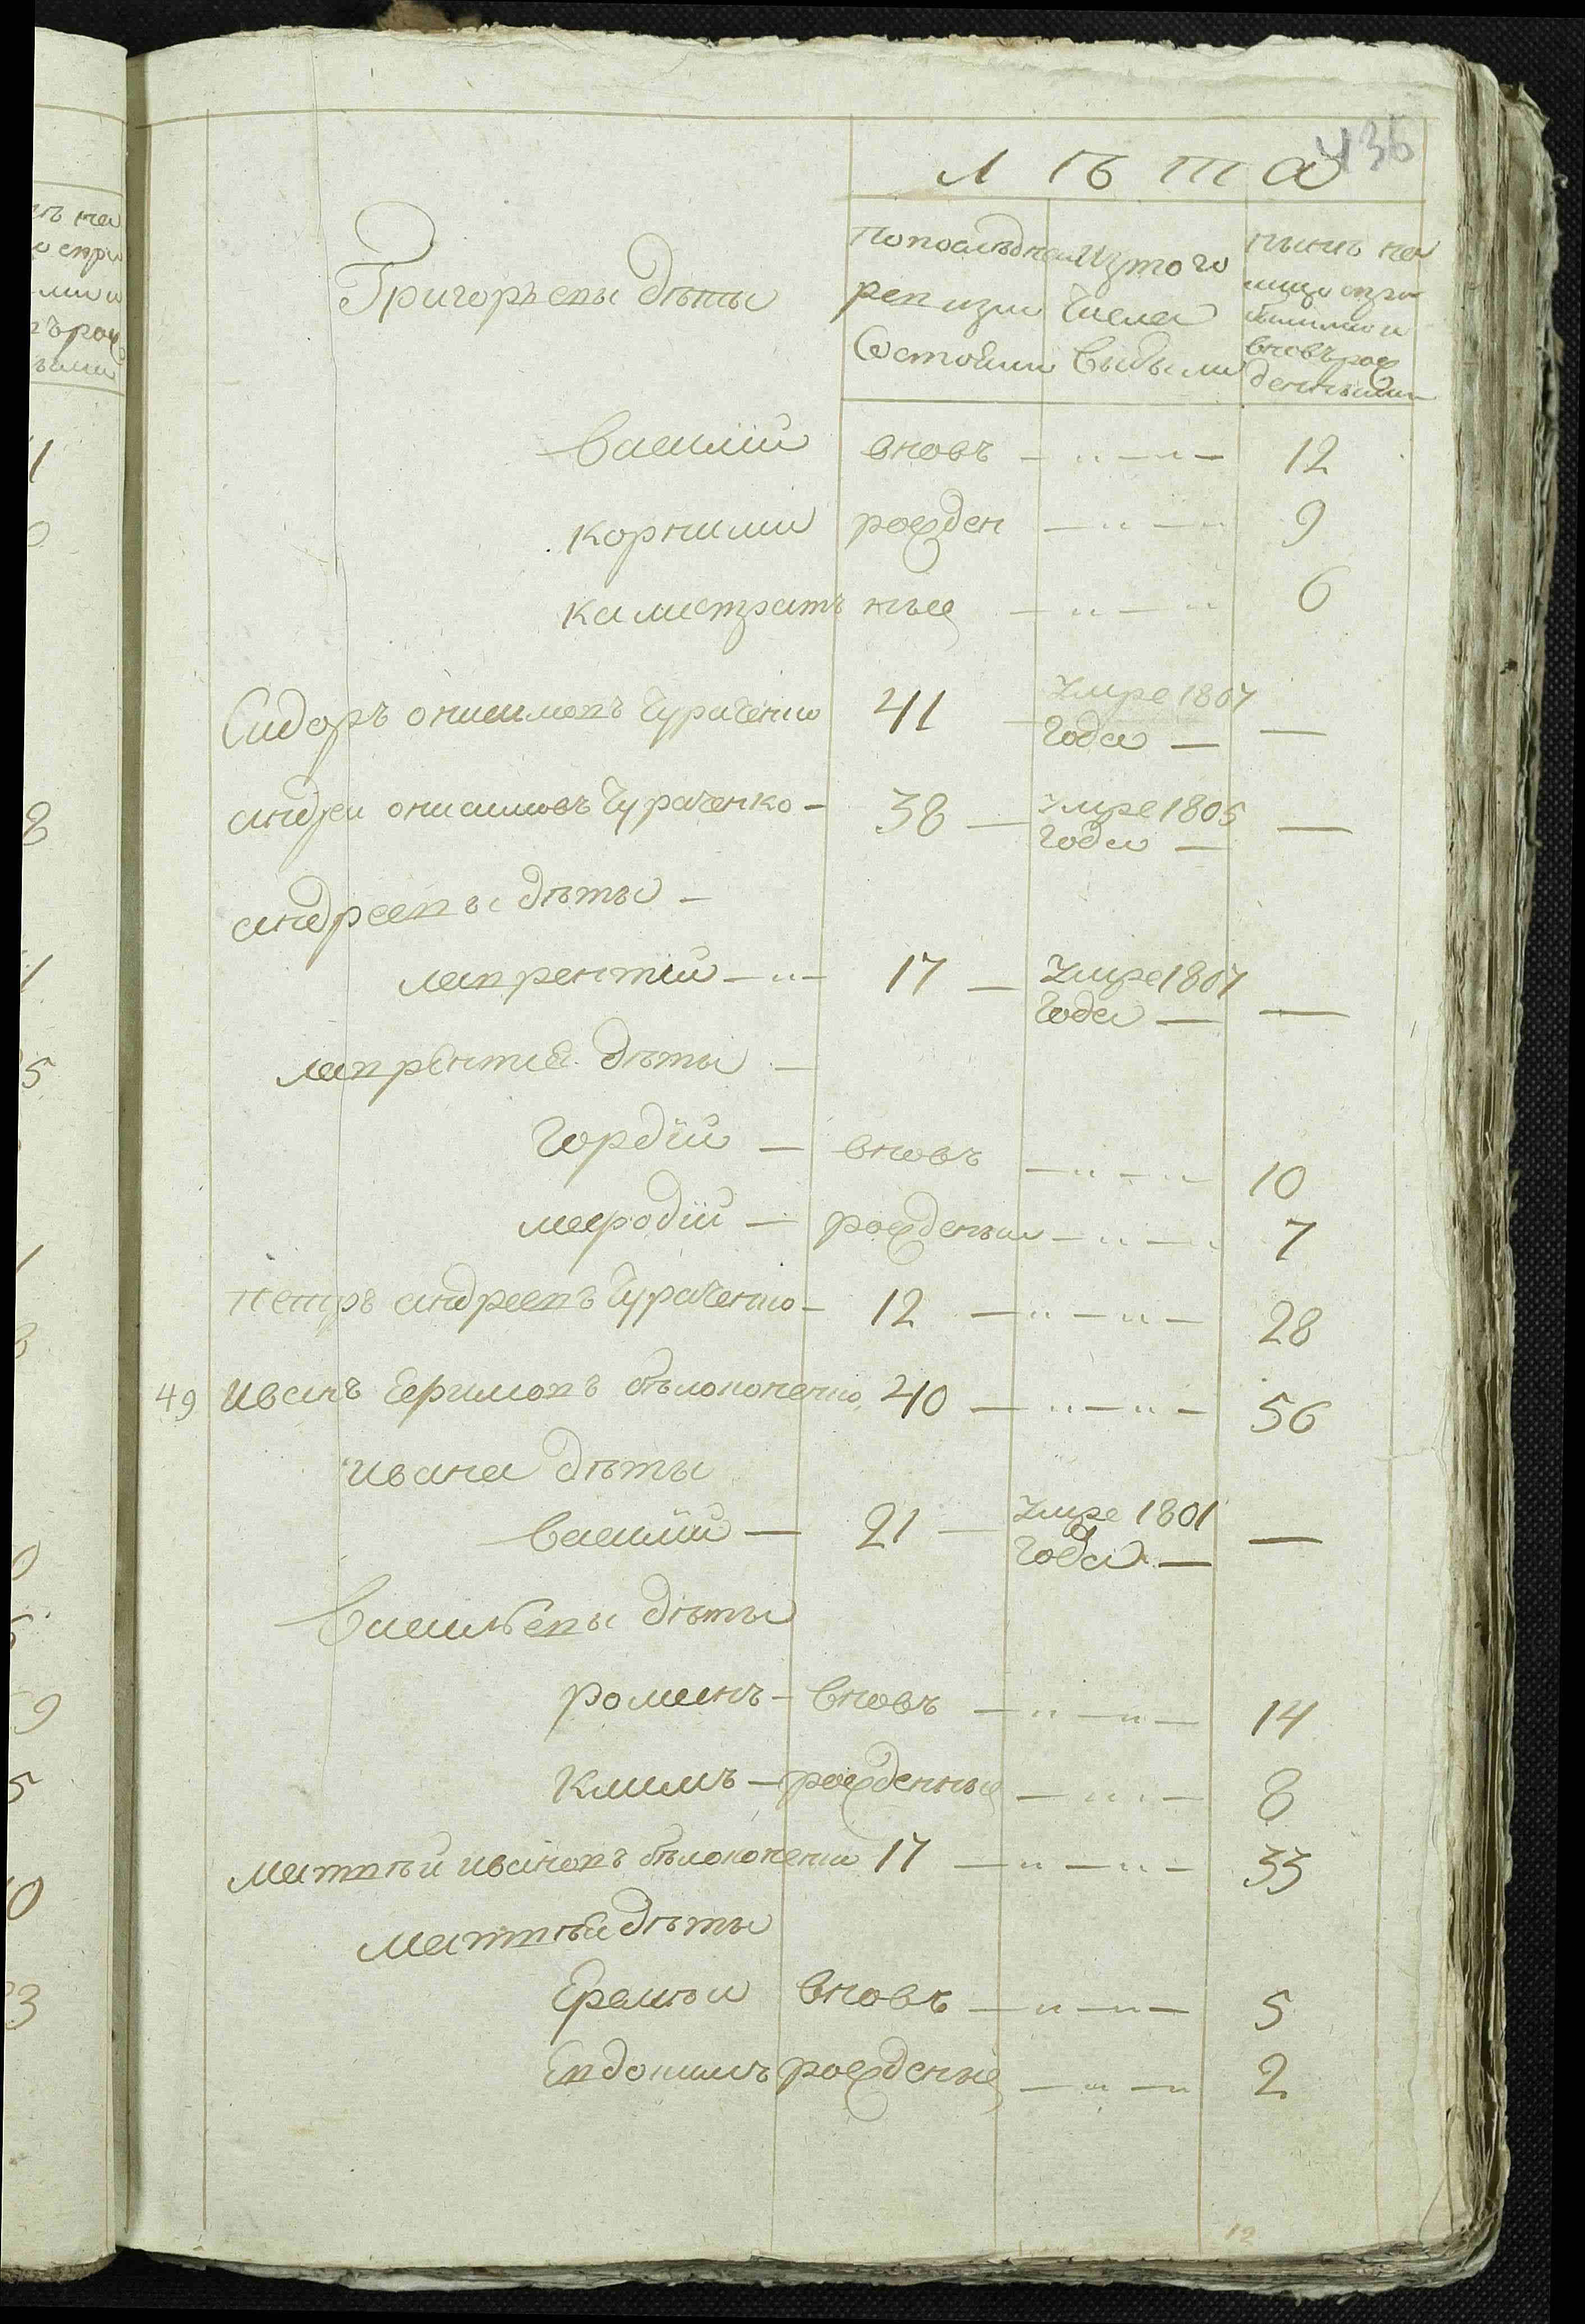 436
лѣта
Григорьевы дѣты
по последней ревизии состояли
из того числа выбыли
ныне на лицо с прибылыми и вновь рожденными
василий вновь 12
корнилий рожден 9
калистрат ные 6
Сидоръ онисимовъ Чураченко 41 умре 1807 года —
андрей онисимовъ Чураченко — 38 — умре 1805 года —
андреевы дѣты —
лаврентий — 17 — умре 1807 года —
лаврентиа дѣты —
Гордий — вновь 10
мефодий — рожденыи 7
петръ андреевъ Чураченко — 12 28
49 иванъ Ефимовъ бѣлоконенко 40 — 56
ивана дѣты
василий — 21 — умре 1801 года —
васильевы дѣты
романъ — вновь 14
климъ — рожденные 8
матвѣй ивановъ бѣлоконенко 17 33
матвѣя дѣты
Еремѣи вновь 5
Евдокимъ рожденые 2
12